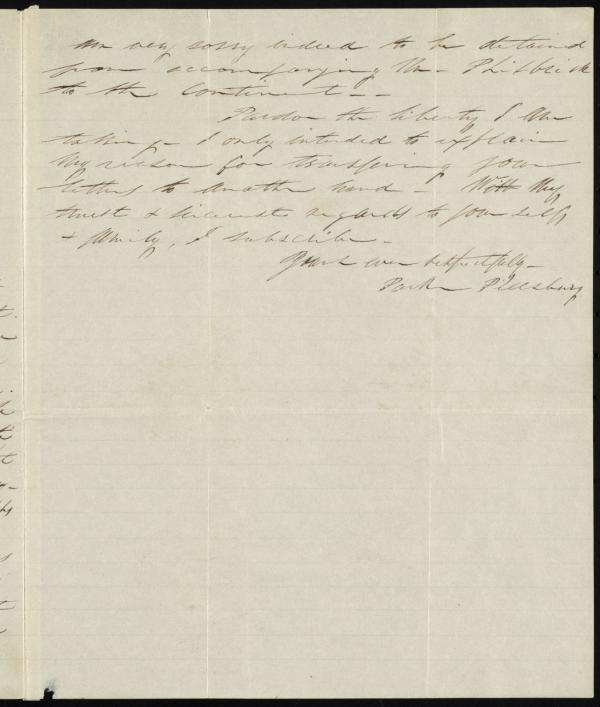 am very sorry indeed to be detained
from accompanying the Philbrick
to the Continent - -
Pardon the liberty I am
taking - I only intended to explain
my reason for transfering your
letters to another hand - With my
best & sincerest regards to yourself
& family, I subscribe -
Yours ever respectfully -
Parker Pillsbury